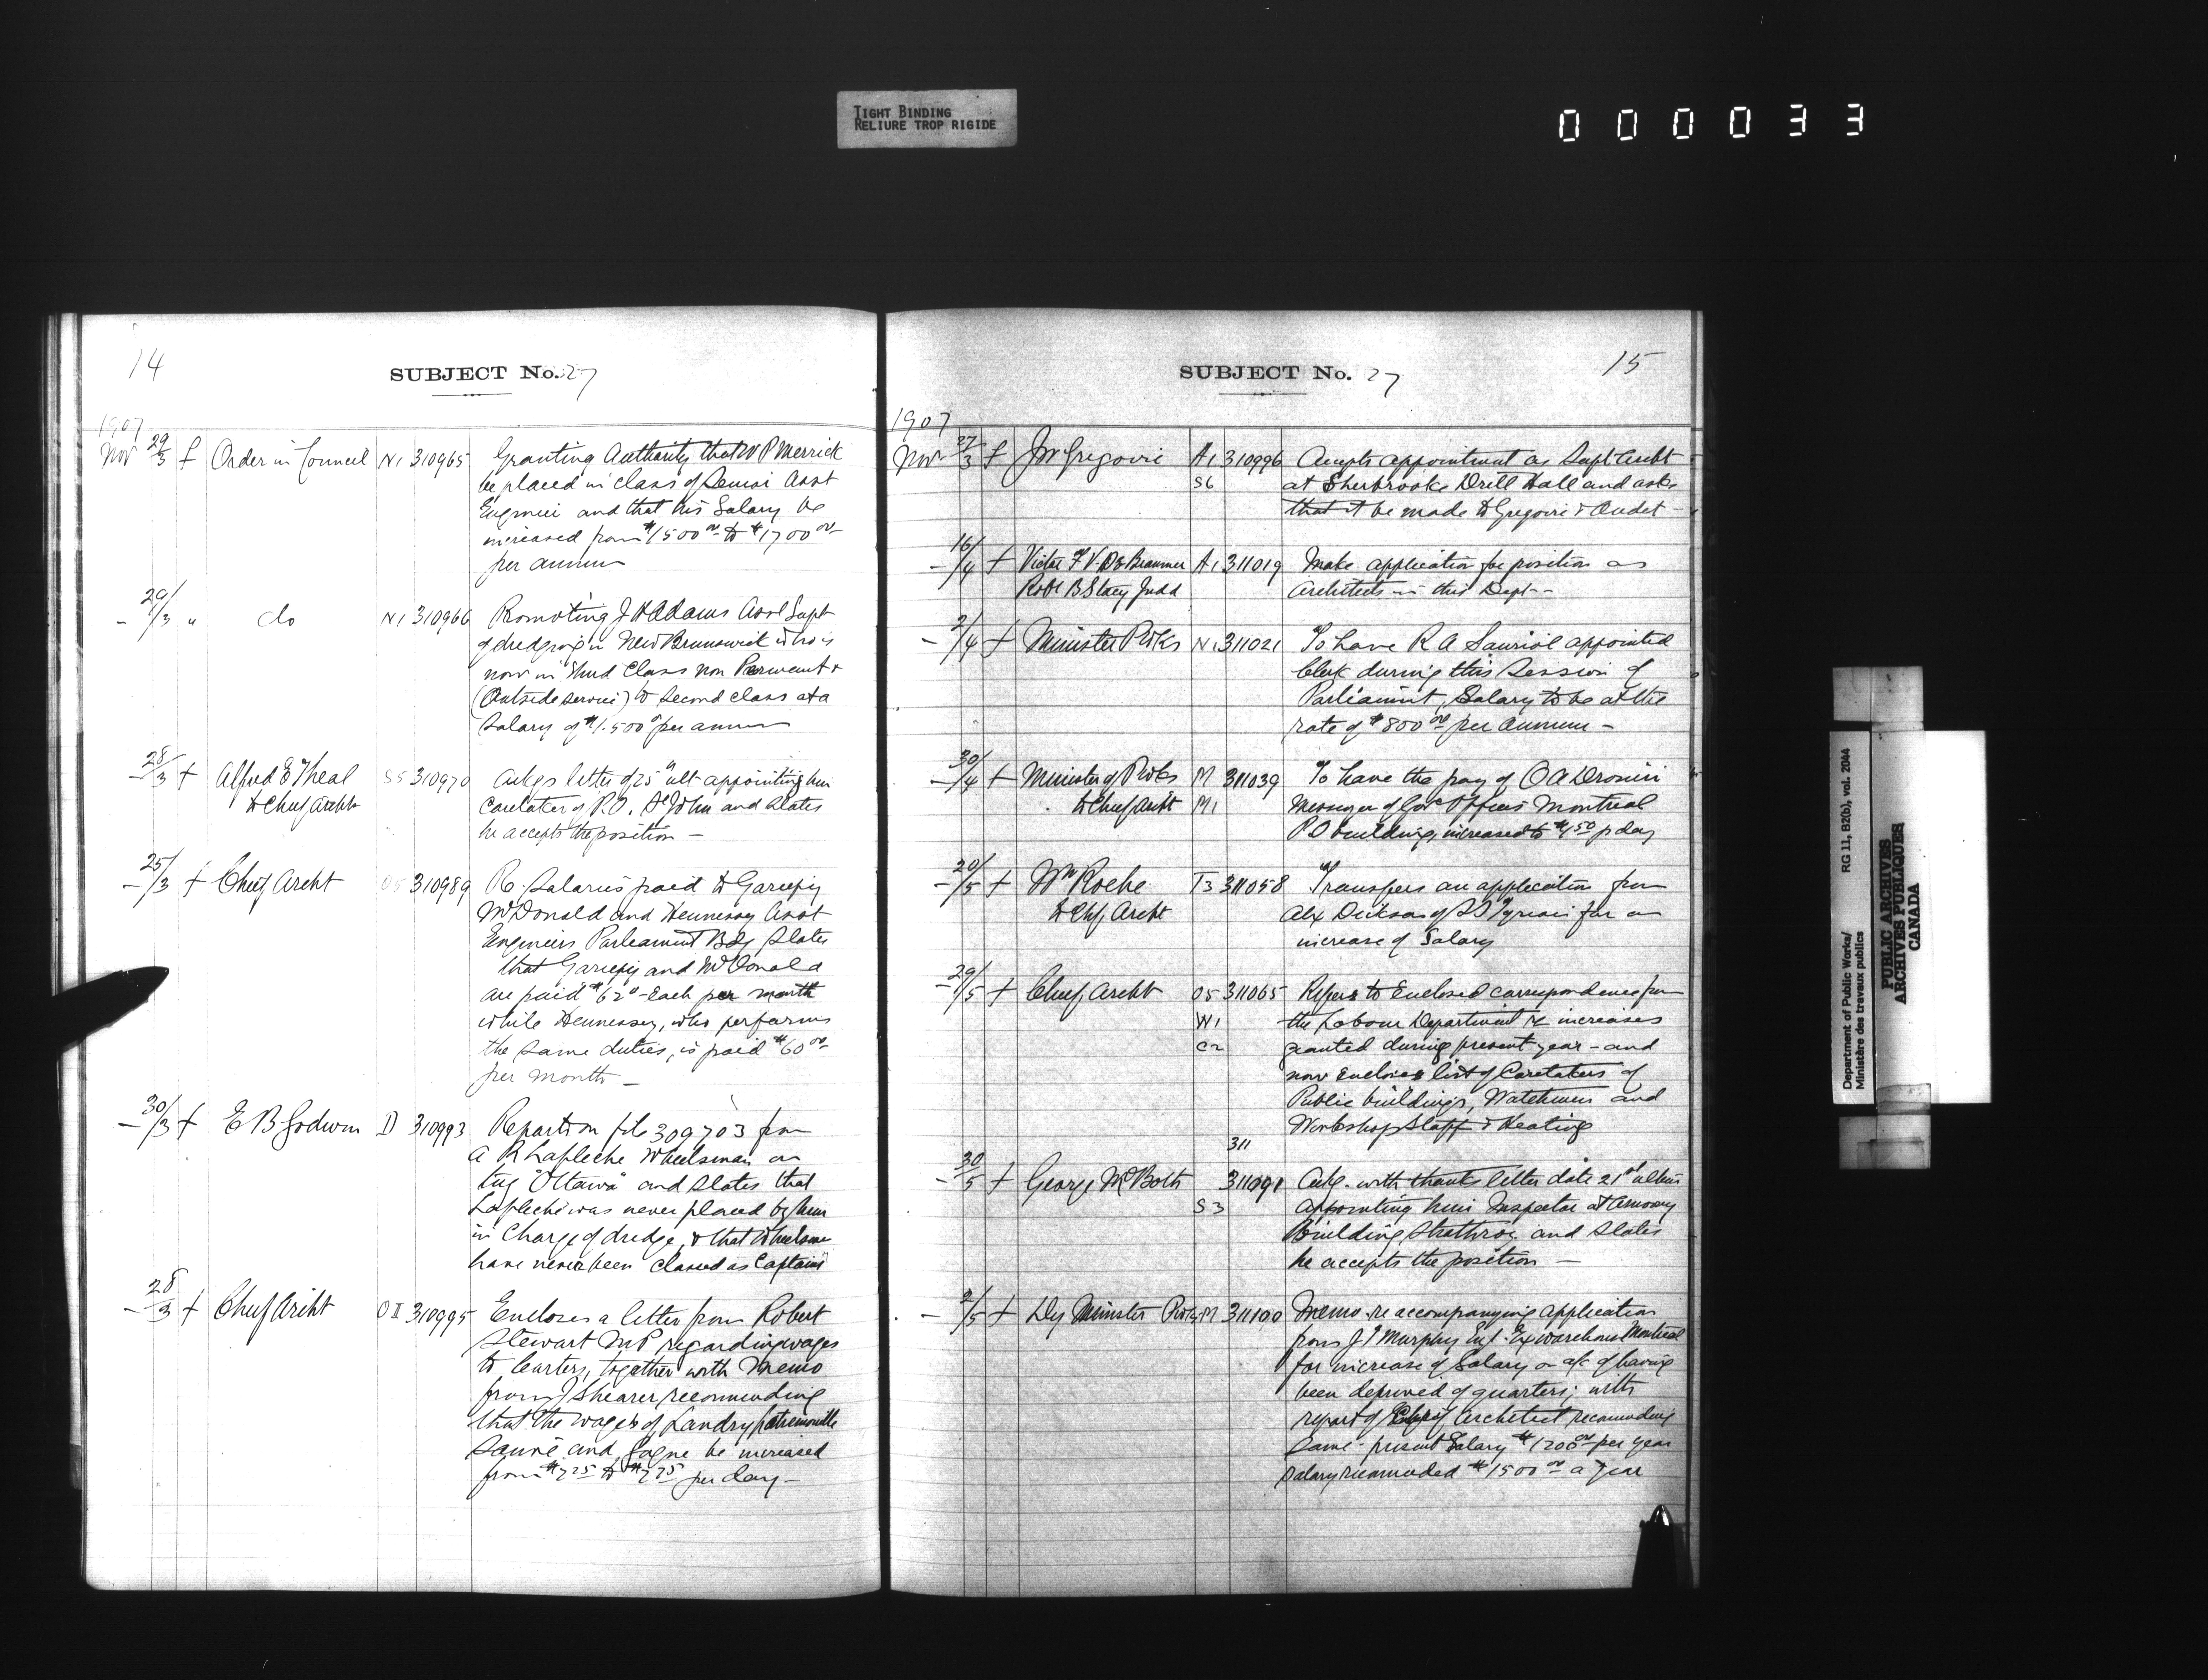 TIGHT BINDING
RELIURE TROP RIGIDE
000033
14
SUBJECT No. 27
1907
Nov 29/3 f Order in Council N1 310965 Granting Authority that W P Merrick
be placed in class of Senior Asst
Engineer and that his Salary be
increased from $1500 00 to $1700 00
per annum
- 29/3 " do N1 310966 Promoting J H Adams Asst Supt
of dredging in New Brunswick who is
now in Third Class non Permanent
(Outside service) to Second class at a
Salary of $1.500 per annum
- 28/3 + Alfred E Theal S5 310970 Ackgs letter of 25th ult appointing him
to Chief Archt Caretaker of P.O. St John and States
he accepts the position -
- 25/3 + Chief Archt O5 310989 Re Salaries paid to Gariepy
McDonald and Hennessy Asst
Engineers Parliament Bdg States
that Gariepy and McDonald
are paid $62 - Each per month
while Hennessy, who performs
the same duties, is paid $60 00
per month -
- 30/3 + E B Godwin D 310993 Report on file 309703 from
A R Lafleche Wheelsman on
tug "Ottawa" and States that
Lafleche was never placed by him
in Charge of dredge, & that Wheelsmen
have never been Classed as Captains
- 28/3 + Chief Archt O II 310995 Encloses a letter from Robert
Stewart M P regarding wages
to Carters, together with Memo
from J Shearer recommending
that the wages of Landry
and Gagne be increased
from to per day -
SUBJECT No. 27
15
1907
Nov 27/3 f J W Gregoire A1 310996 Accepts appointment as Supt Archt
S6 at Sherbrooke Drill Hall and asks
that it be made to Gregoire & Audet -
- 16/4 + Victor A1 311019 Make application for position as
Robt B Stacy Judd Architects in this Dept -
- 2/4 + Minister P Wks N1 311021 To have R A Sauriol appointed
Clerk during this Session of
Parliament, Salary to be at the
rate of $800 00 per Annum -
- 30/4 + Minister of P Wks M 311039 To have the pay of O A Drouin
to Chief Archt M1 Messenger of Govt Offices Montreal
P O building, increased to p day
- 20/5 + Wm Roche T3 311058 Transfers an application from
to Chf Archt Alex Dickson of SS Tyrian for an
increase of Salary
- 29/5 + Chief Archt O5 311065 Refers to Enclosed correspondence from
W1 the Labour Department re increases
C2 granted during present year - and
now Encloses list of Caretakers of
Public buildings, Watchmen and
Workshop Staff & Heating
311
- 30/5 + George McBoth 311091 Ackg. with thanks letter date 21st ultimo
S3 appointing him Inspector at Armoury
Building Strathroy and States
he accepts the position -
- 2/5 + Dy Minister P Wks M 311100 Memo re accompanying application
from J T Murphy Ex warehouse Montreal
for increase of Salary on a/c of having
been deprived of quarters; with
report of Chief Architect recommending
Same - present Salary $1200 00 per year
Salary recommended $1500 00 a year
Department of Public Works/
Ministère des travaux publics
RG 11, B2(b), vol. 2044
PUBLIC ARCHIVES
ARCHIVES PUBLIQUES
CANADA